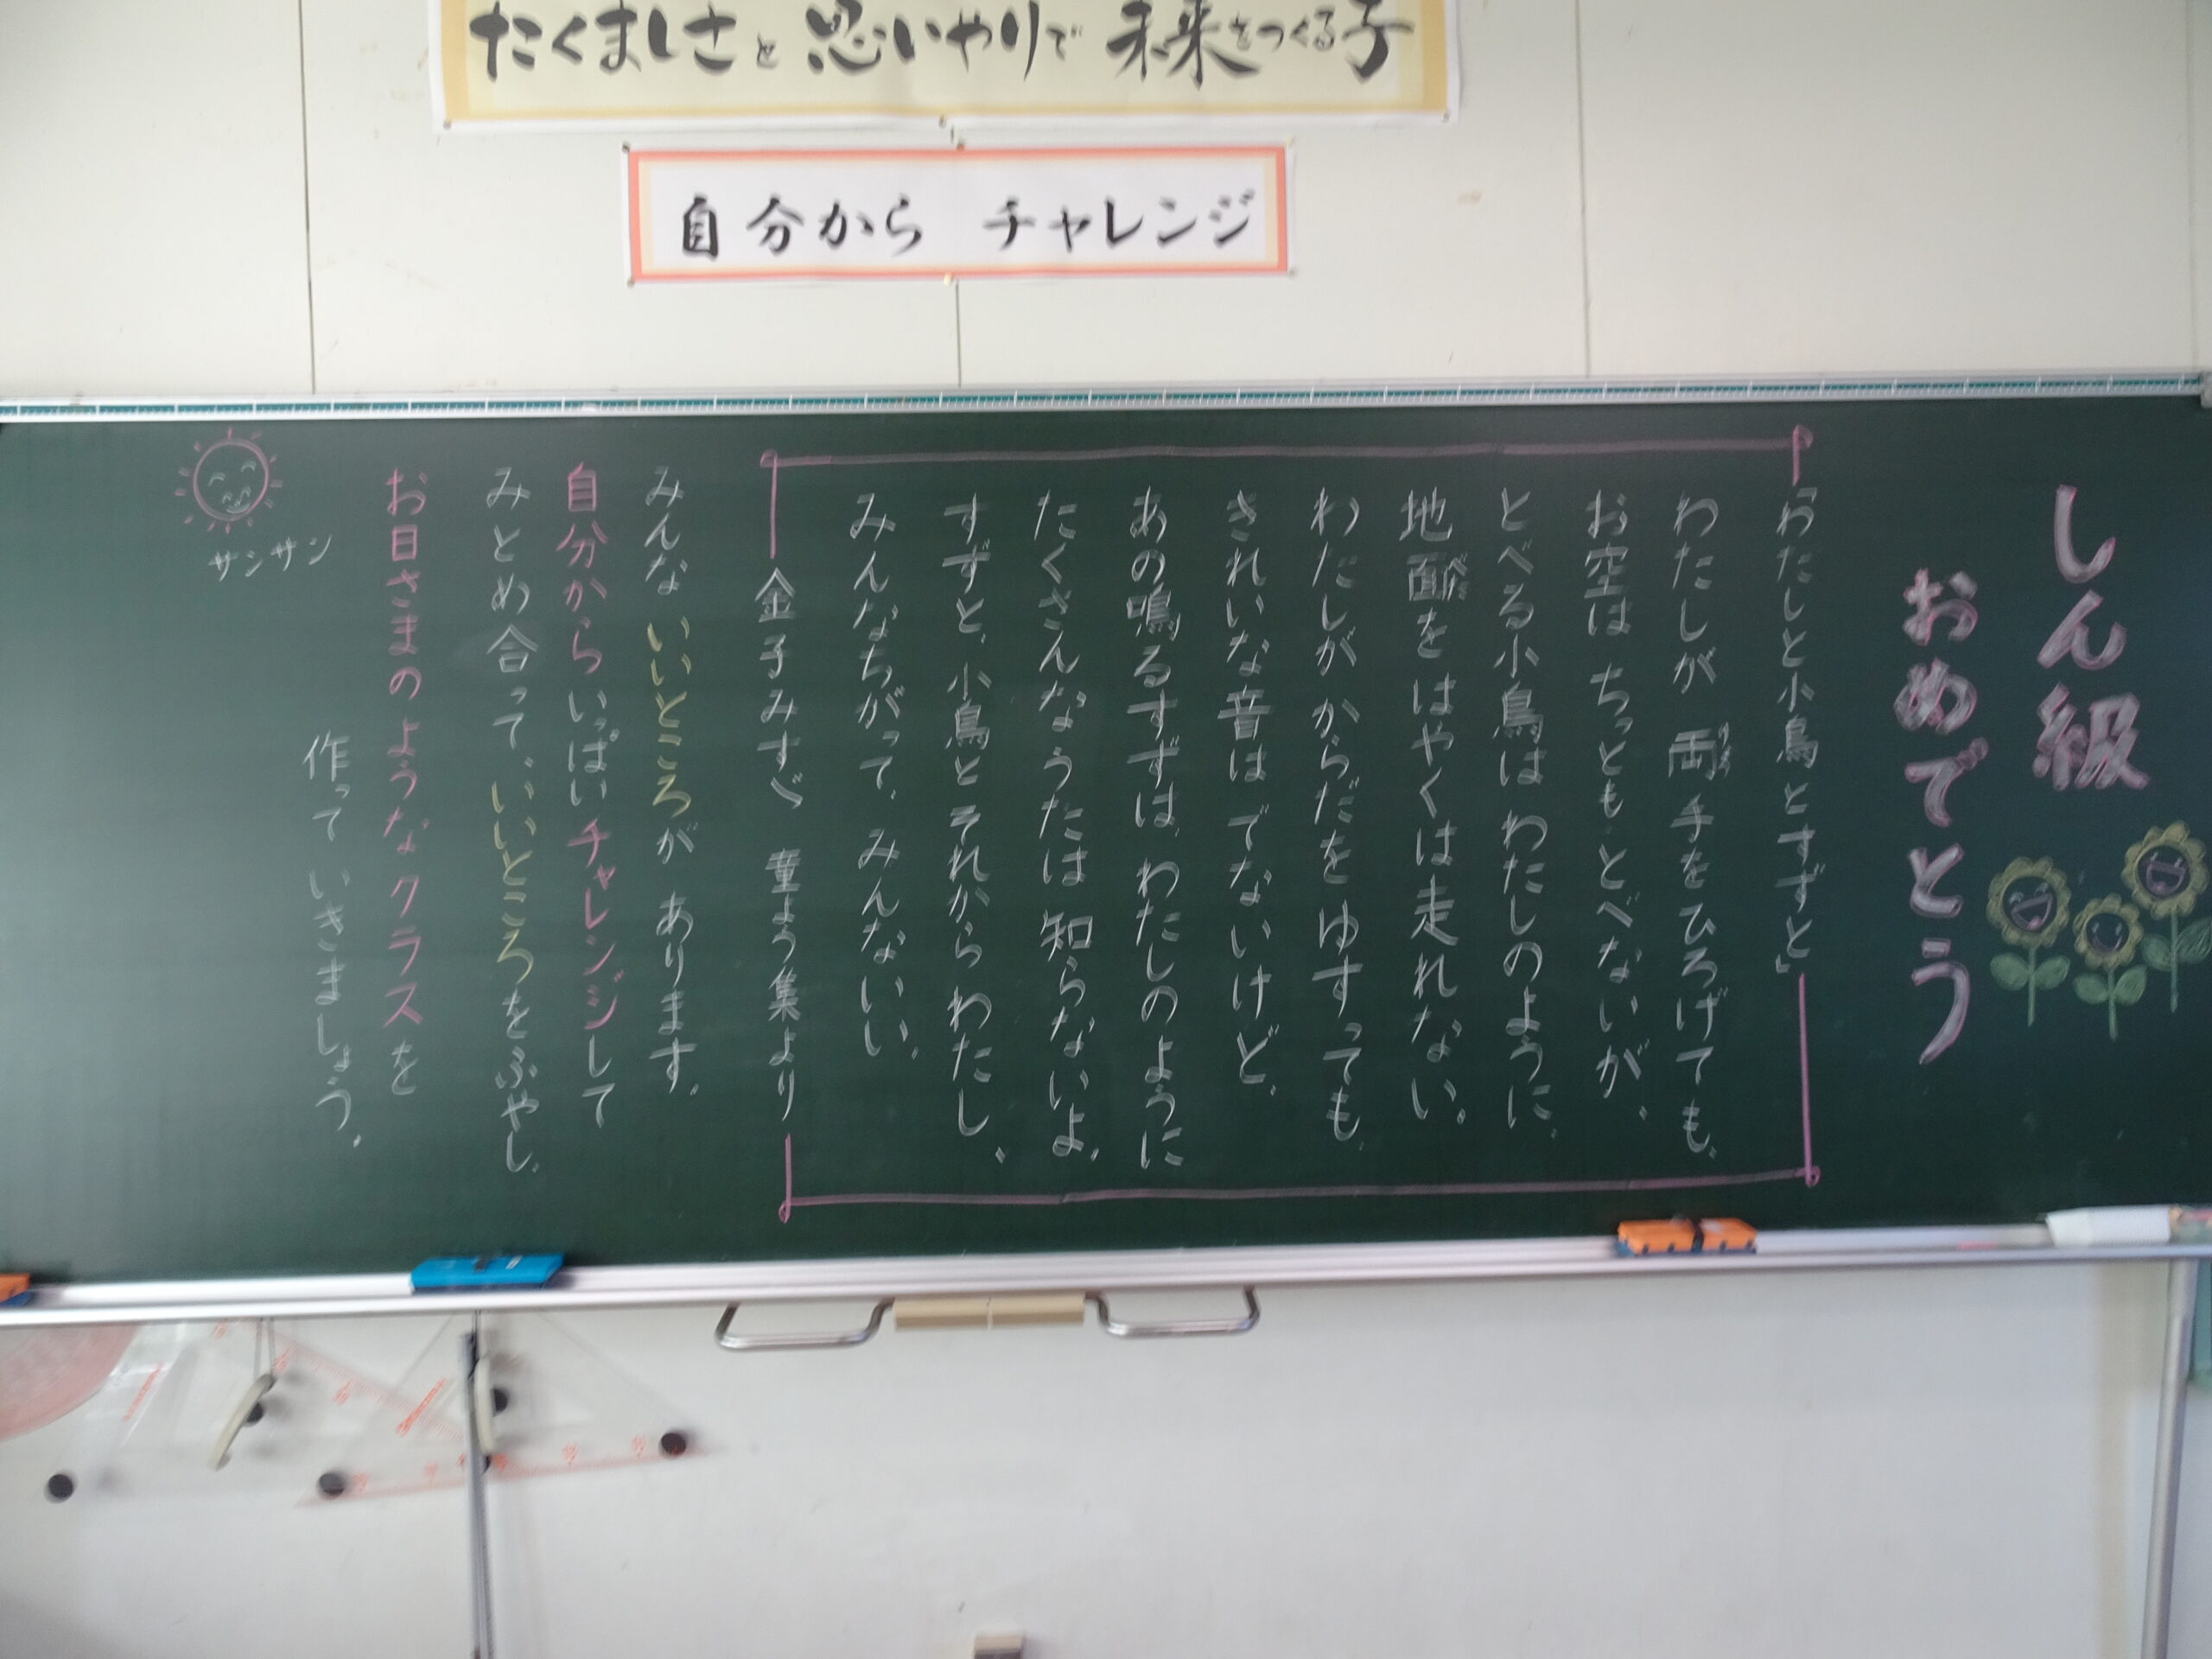 たくましさと思いやりで未来をつくる子
自分から チャレンジ
しん級
おめでとう
「わたしと小鳥とすずと」
わたしが 両手をひろげても、
お空は ちっとも とべないが、
とべる小鳥は わたしのように、
地面を はやくは走れない。
わたしが からだを ゆすっても、
きれいな音は でないけど、
あの鳴るすずは、わたしのように
たくさんなうたは 知らないよ。
すずと、小鳥と それから わたし、
みんなちがって、みんないい。
金子みすゞ 童よう集より
みんな いいところが あります。
自分から いっぱい チャレンジして
みとめ合って、いいところをふやし、
お日さまのような クラスを
作って いきましょう。
サンサン